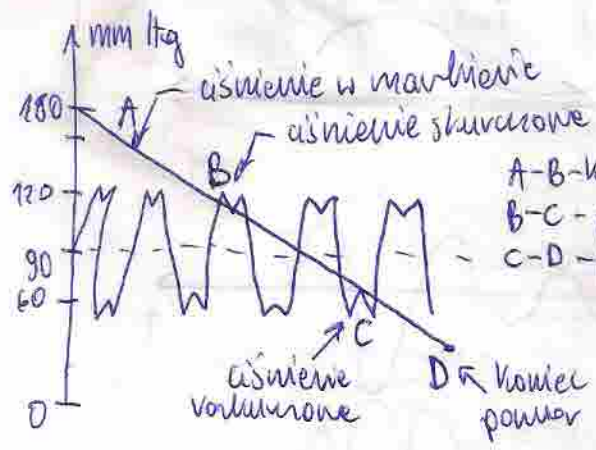 mm Hg
180
A
ciśnienie w mankiecie
B
ciśnienie skurczowe
120
A-B-
B-C-
90
C-D-
60
C
0
ciśnienie
rozkurczowe
D
koniec
pomiar